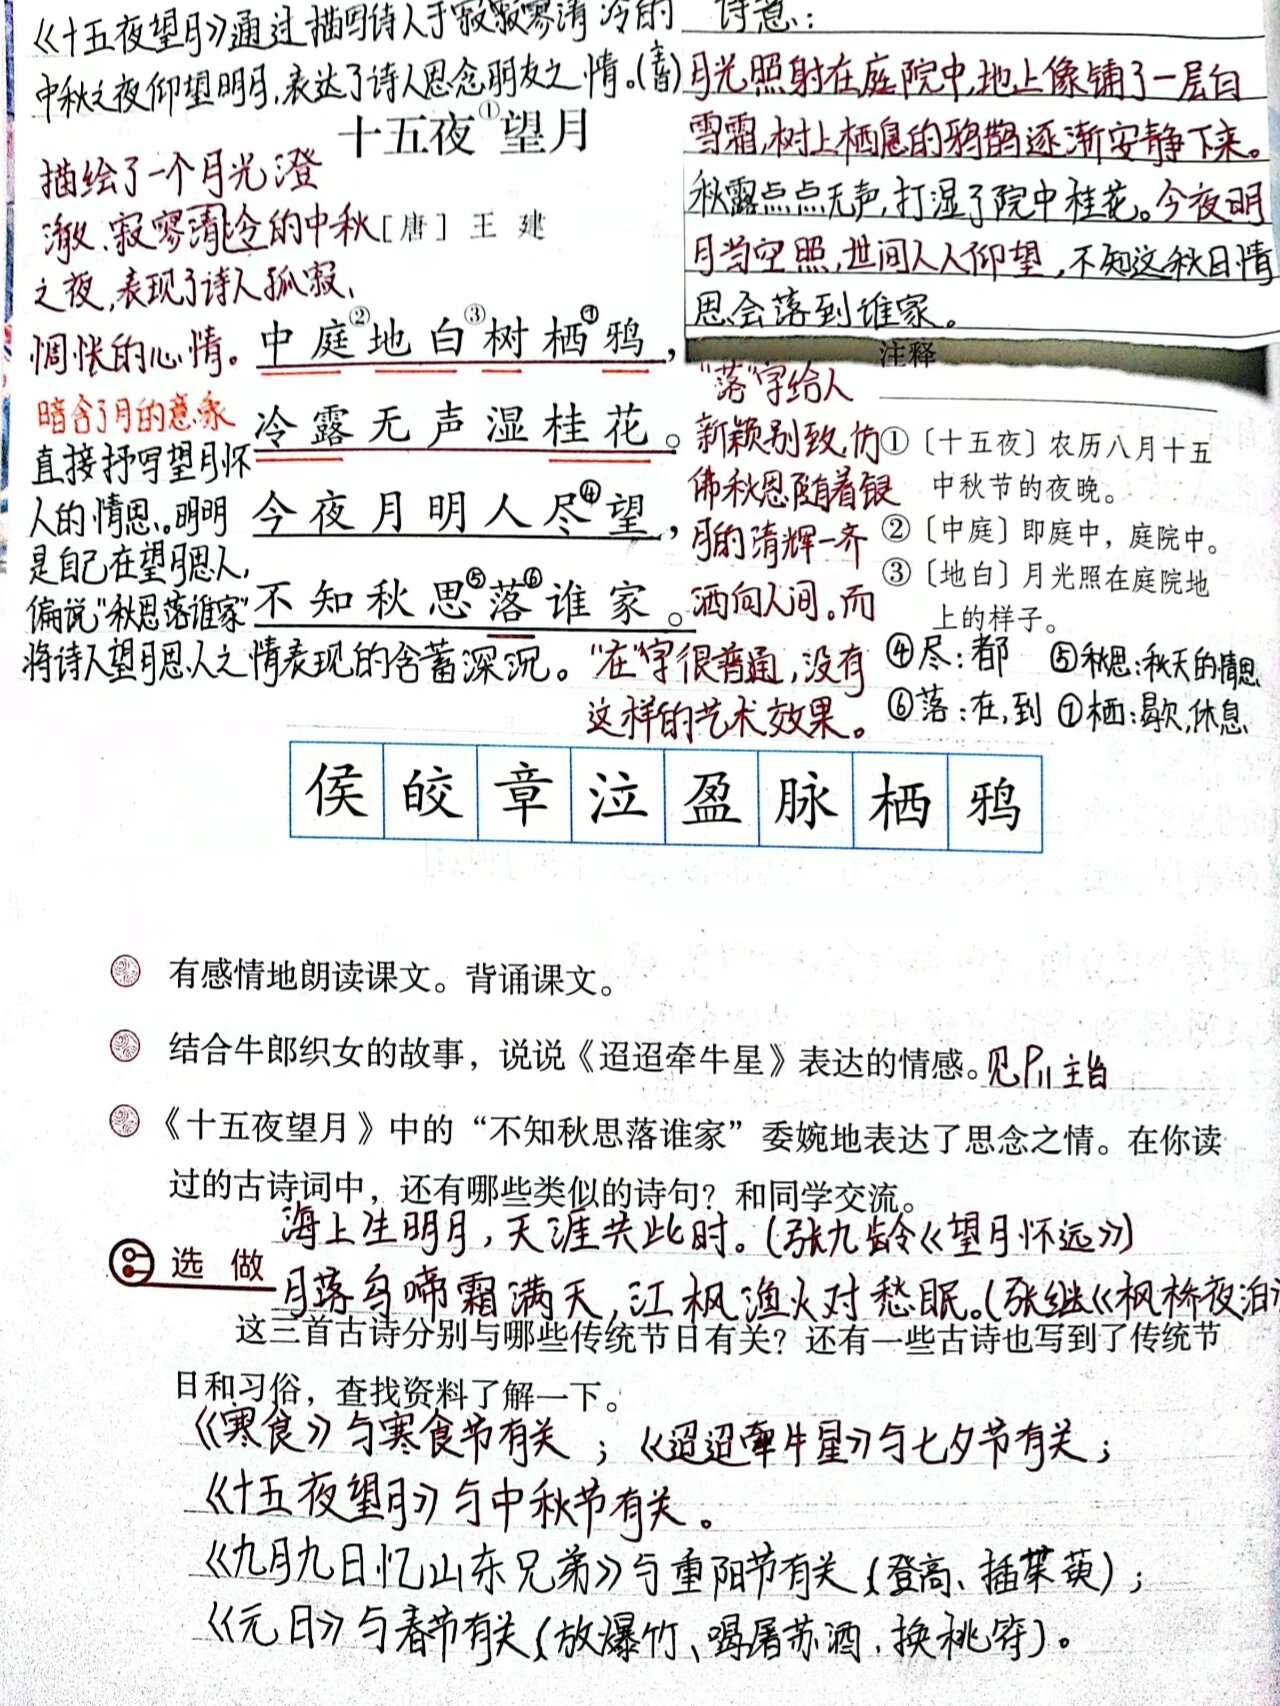 《十五夜望月》通过描写诗人于寂寂寥清冷的
中秋之夜仰望明月,表达了诗人思念朋友之情。(主旨)
诗意:
月光照射在庭院中,地上像铺了一层白
雪霜,树上栖息的鸦鹊逐渐安静下来。
秋露点点无声,打湿了院中桂花。今夜明
月当空照,世间人人仰望,不知这秋日情
思会落到谁家。
十五夜①望月
[唐] 王 建
描绘了一个月光澄
澈、寂寥清冷的中秋
之夜,表现了诗人孤寂、
惆怅的心情。
中庭②地白③树栖⑦鸦,
冷露无声湿桂花。
今夜月明人尽④望,
不知秋思⑤落⑥谁家。
暗含了月的意象
直接抒写望月怀
人的情思。明明
是自己在望月思人,
偏说"秋思落谁家"
将诗人望月思人之情表现的含蓄深沉。
"落"字给人
新颖别致,仿
佛秋思随着银
月的清辉一齐
洒向人间。而
"在"字很普通,没有
这样的艺术效果。
注释
①〔十五夜〕农历八月十五
中秋节的夜晚。
②〔中庭〕即庭中,庭院中。
③〔地白〕月光照在庭院地
上的样子。
④尽:都 ⑤秋思:秋天的情思
⑥落:在,到 ⑦栖:歇,休息
侯 皎 章 泣 盈 脉 栖 鸦
有感情地朗读课文。背诵课文。
结合牛郎织女的故事,说说《迢迢牵牛星》表达的情感。见P11主旨
《十五夜望月》中的“不知秋思落谁家”委婉地表达了思念之情。在你读
过的古诗词中,还有哪些类似的诗句?和同学交流。
海上生明月,天涯共此时。(张九龄《望月怀远》)
月落乌啼霜满天,江枫渔火对愁眠。(张继《枫桥夜泊》
选做
这三首古诗分别与哪些传统节日有关?还有一些古诗也写到了传统节
日和习俗,查找资料了解一下。
《寒食》与寒食节有关;《迢迢牵牛星》与七夕节有关;
《十五夜望月》与中秋节有关。
《九月九日忆山东兄弟》与重阳节有关(登高、插茱萸);
《元日》与春节有关(放爆竹、喝屠苏酒、换桃符)。